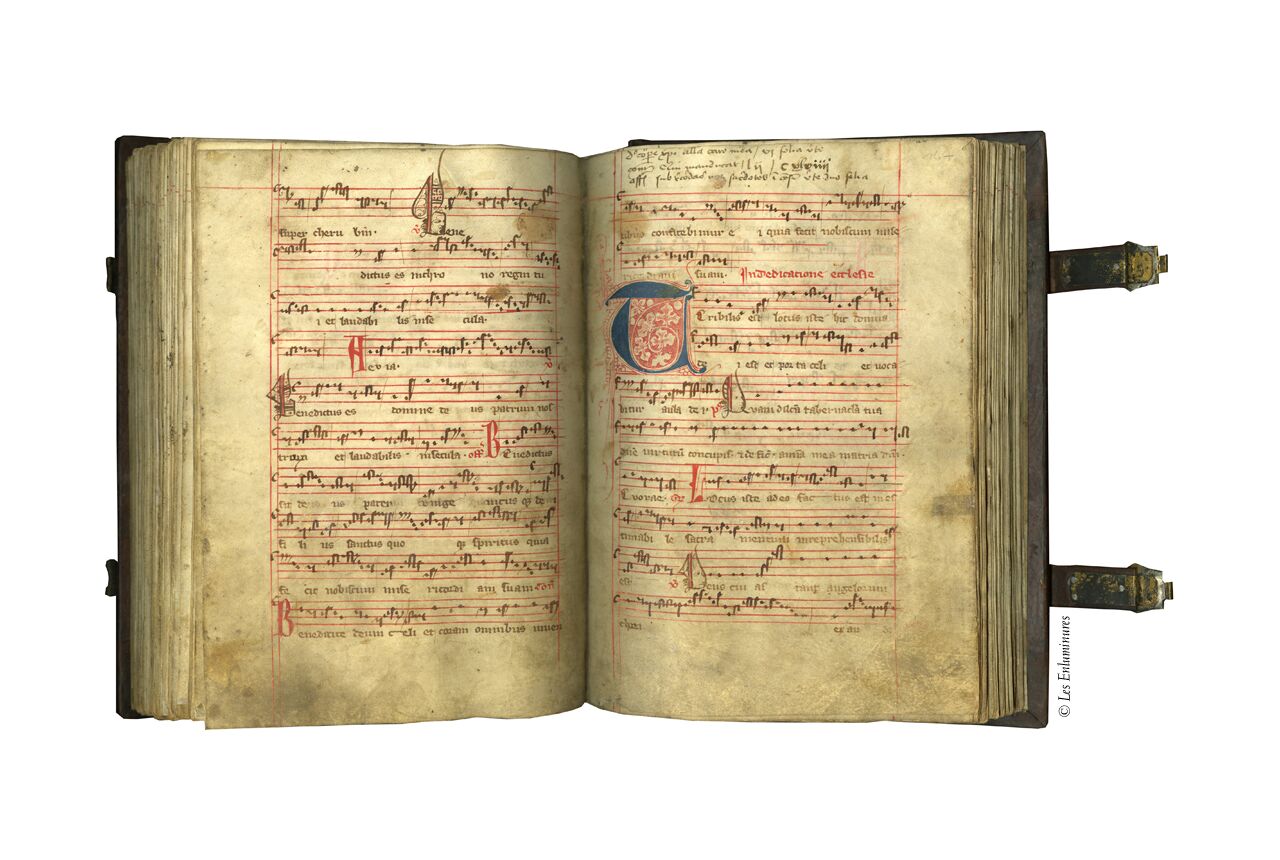 super cheru bim . ℣ Bene
dictus es in thro no regni tu
i et laudabi lis in se cula .
A ev ia . ℣
Benedictus es domine de us patrum nos
trorum et laudabilis in secula . off Benedictus
sit de us pater unige nitus q de i
fi li us sanctus quo q spiritus quia
fe cit nobiscum mise ricordi am suam com
Benedicite deum celi et coram omnibus viven
alla caro mea vi folia
manducat lii
tibus confitebimur e i quia fecit nobiscum mise
ricordiam suam . In dedicatione ecclesie
Tribilis est locus iste hic domus
e i est et por ta celi et voca
bitur aula de i ps Quam dilecta tabernacula tua
dne virtutum concupis anima mea in atria dni
Evovae . Gr Locus iste a deo fac tus est in es
timabi le sacra mentum inreprehensibilis
est ℣ Deus cui as tant angelorum
chori ex au
© Les Enluminures